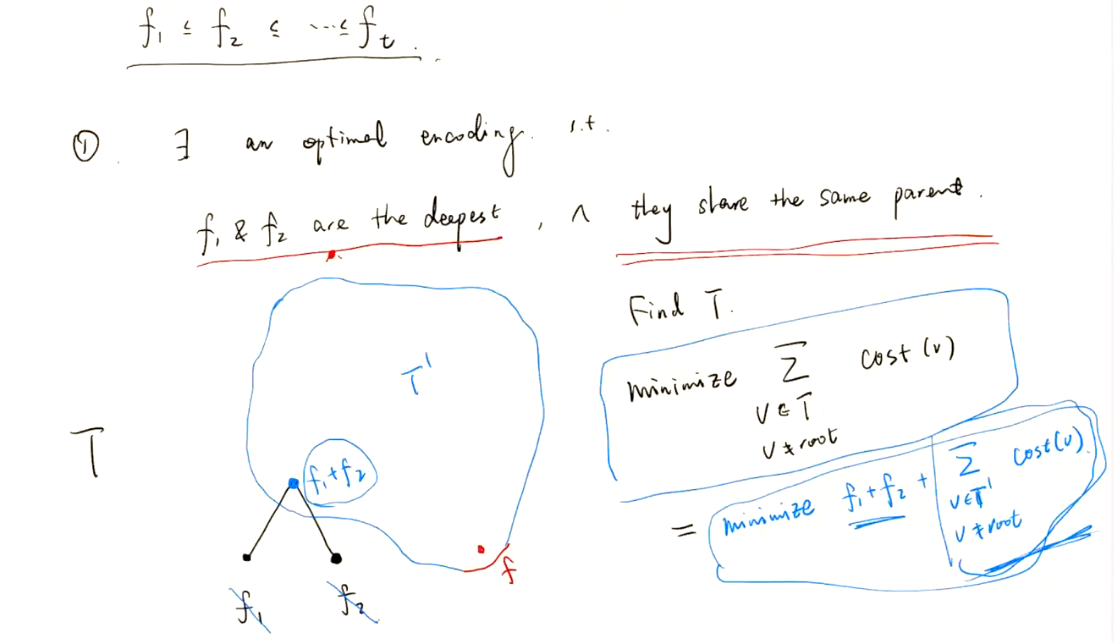 f₁ ≤ f₂ ≤ ... ≤ f_t .
① . ∃ an optimal encoding . s.t.
f₁ & f₂ are the deepest , ∧ they share the same parent .
Find T.
minimize ∑ cost (v)
v ∈ T
v ≠ root
T'
T
f₁+f₂
= minimize f₁+f₂ + ∑ cost(v)
v∈T'
v ≠ root
f
f₁ f₂